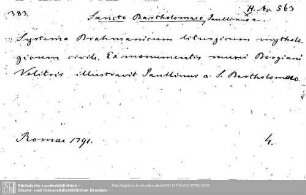 383.
H. No. 563
Sancto Bartholomaeo, Paullinus a.
Systema Brahmanicum liturgicum mytholo-
gicum civile. Ex monumentis musei Borgiani
Velitris illustravit Paullinus a S. Bartholomaeo.
Romae 1791.
4.
Sächsische Landesbibliothek -
Staats- und Universitätsbibliothek Dresden